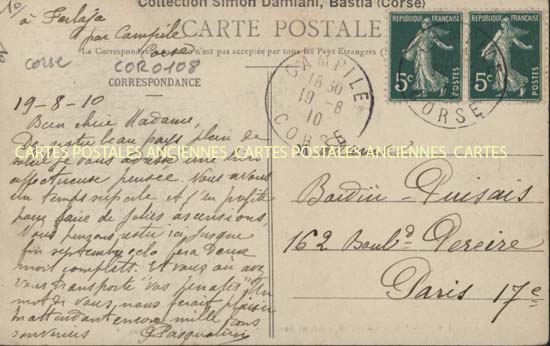 Collection Simon Damiani, Bastia (Corse)
à Folaja
par Campile
Corse
CARTE POSTALE
La Correspondance n'est pas acceptée par tous les Pays Étrangers
corse
COR0108
CORRESPONDANCE
19-8-10
Bien chère Madame,
au pays plein de
je vous une bien
affectueuse pensée. Nous avons
un temps superbe et j'en profite
pour faire de jolies ascensions,
Nous pensons rester ici jusque
fin septembre, cela fera deux
mois complets. Et vous où avez
vous transporté vos penates? Un
mot de vous, nous ferait plaisir
m'attendant encore mille bons
souvenirs
CARTES POSTALES ANCIENNES CARTES POSTALES ANCIENNES CARTES
CAMPILE
18 30
19 -8
10
CORSE
REPUBLIQUE FRANÇAISE
5c
POSTES
REPUBLIQUE FRANÇAISE
5c
POSTES
CORSE
162 Bould Pereire
Paris 17e